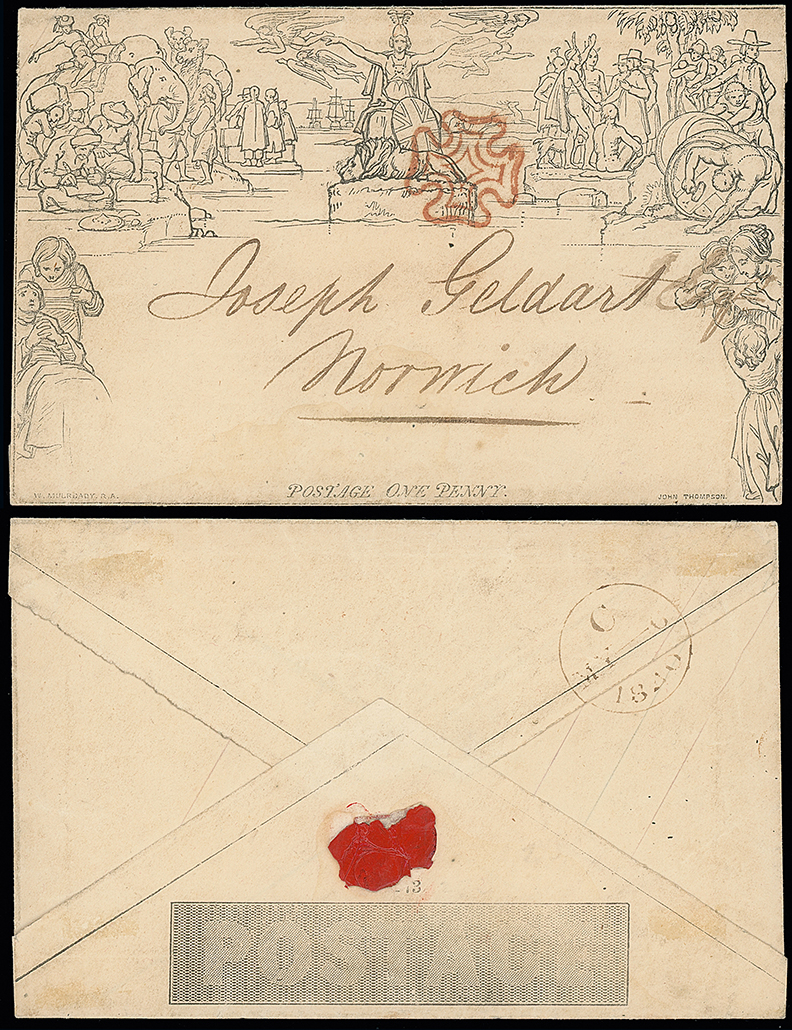 Joseph Geldart Esq
Norwich.
W. MULREADY. R.A.
POSTAGE ONE PENNY.
JOHN THOMPSON.
C
MY 6
1840
POSTAGE